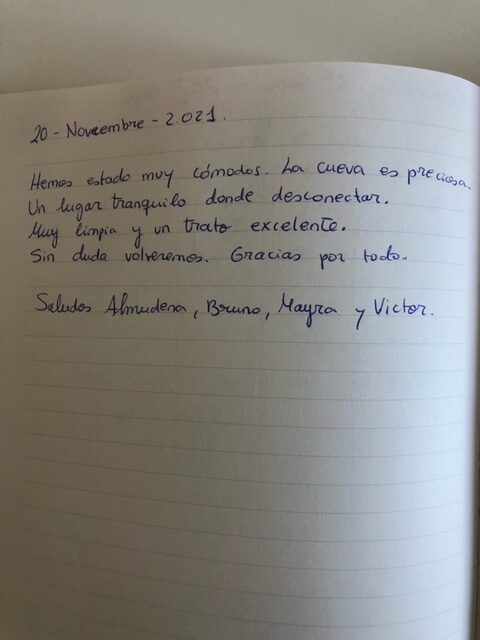 20 - Noviembre - 2.021.
Hemos estado muy cómodos. La cueva es preciosa.
Un lugar tranquilo donde desconectar.
Muy limpia y un trato excelente.
Sin duda volveremos. Gracias por todo.
Saludos Almudena, Bruno, Mayra y Victor.